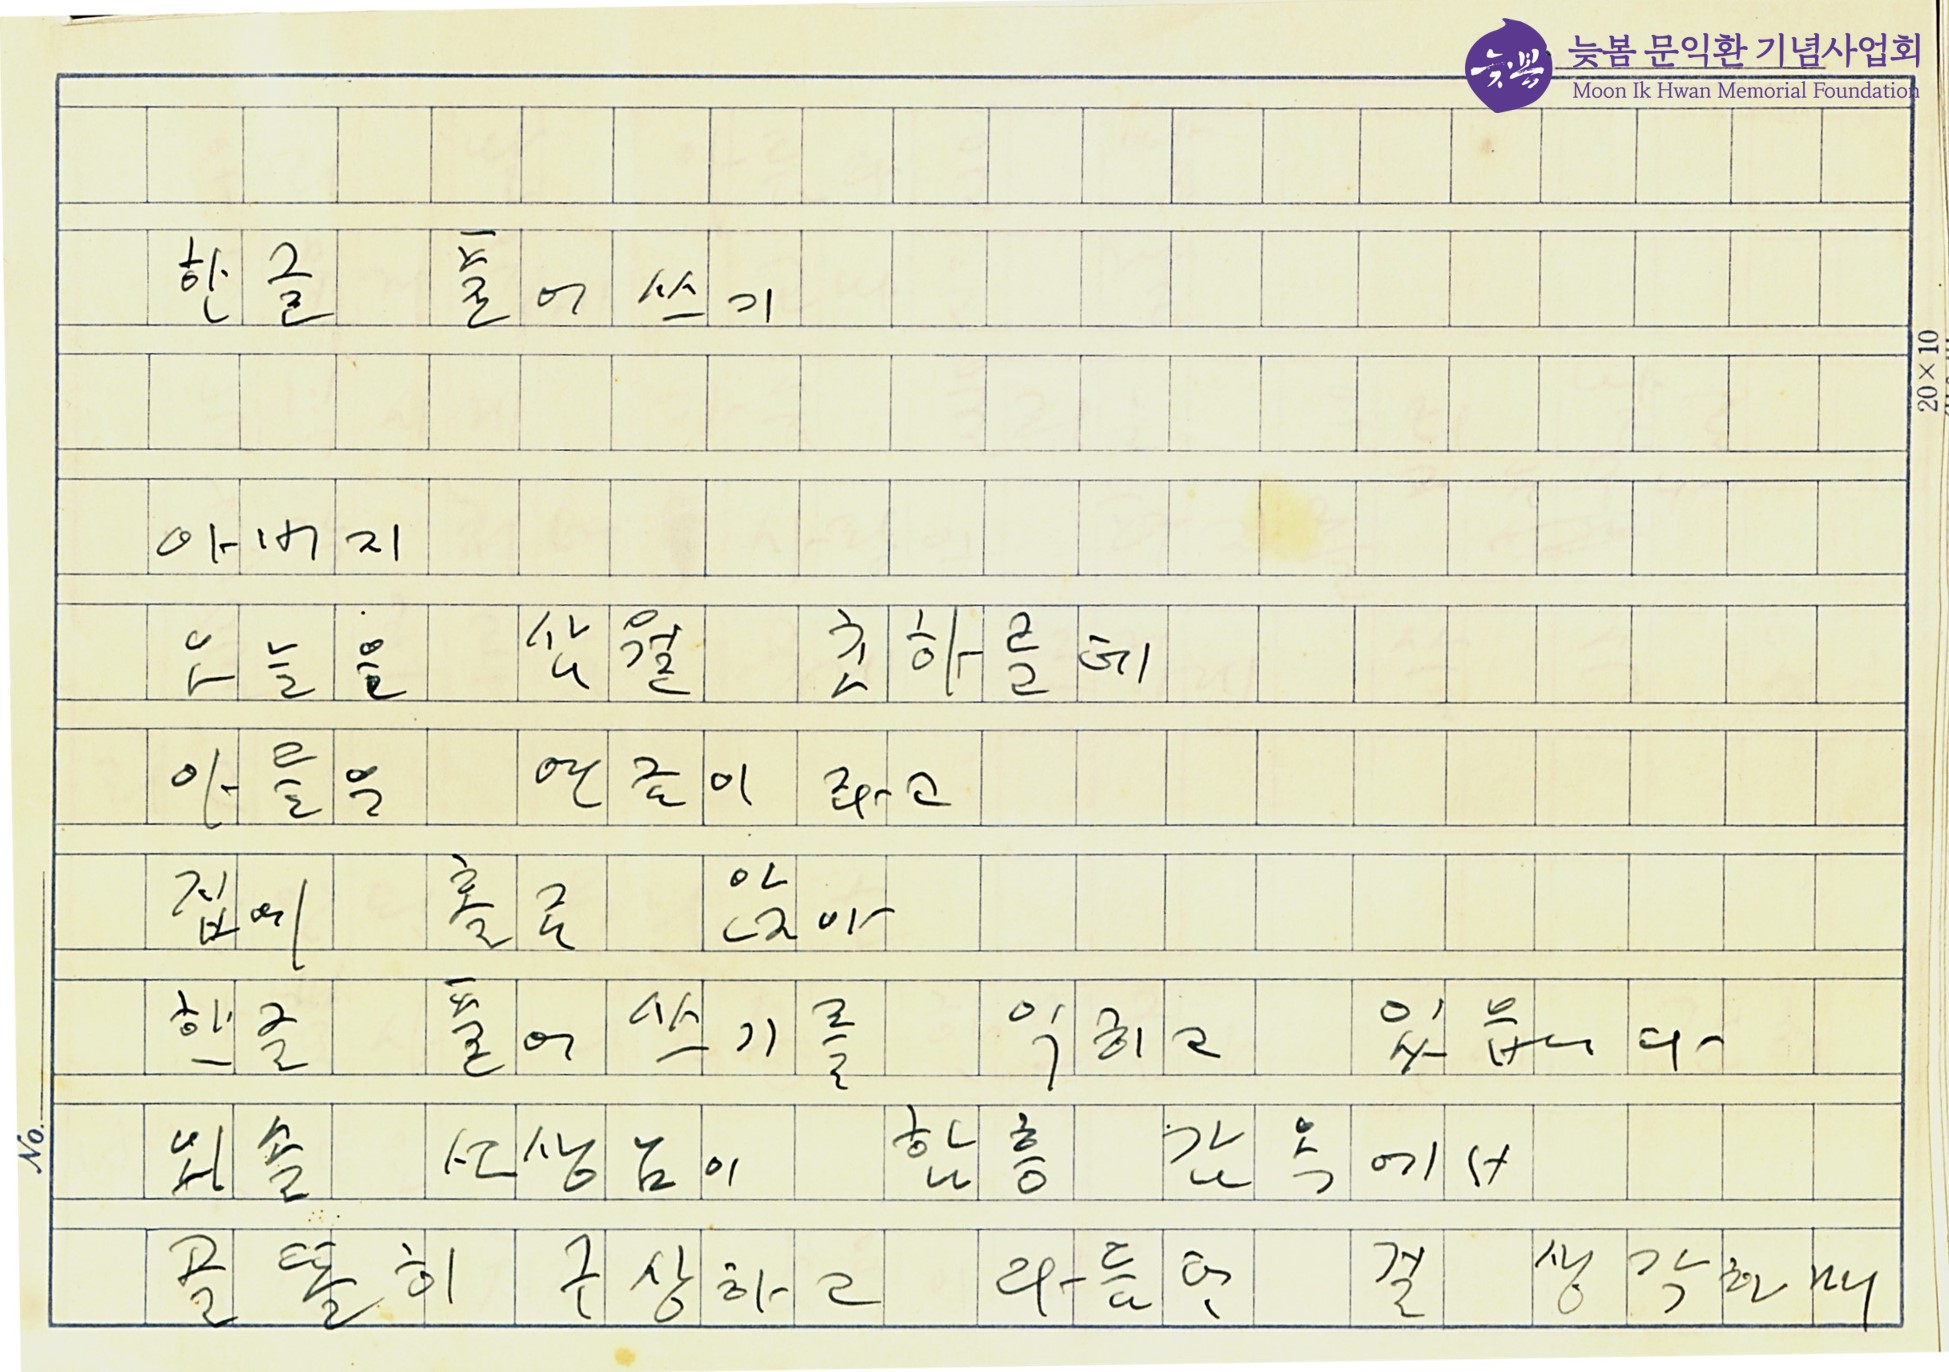 늦봄 문익환 기념사업회
Moon Ik Hwan Memorial Foundation
한글 풀어쓰기
아버지
오늘은 삼월 초하룬데
아들은 연금이라고
집에 홀로 앉아
한글 풀어쓰기를 익히고 있습니다
외솔 선생님이 함흥 감옥에서
골똘히 구상하고 다듬던 걸 생각하며
20×10
No.